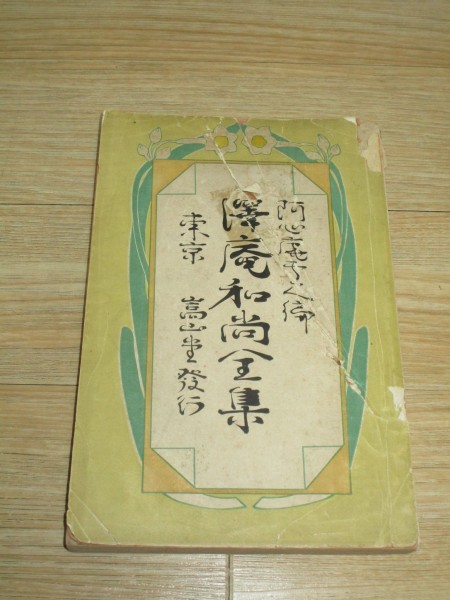 阿心庵雪人編
澤庵和尚全集
東京　嵩山堂發行